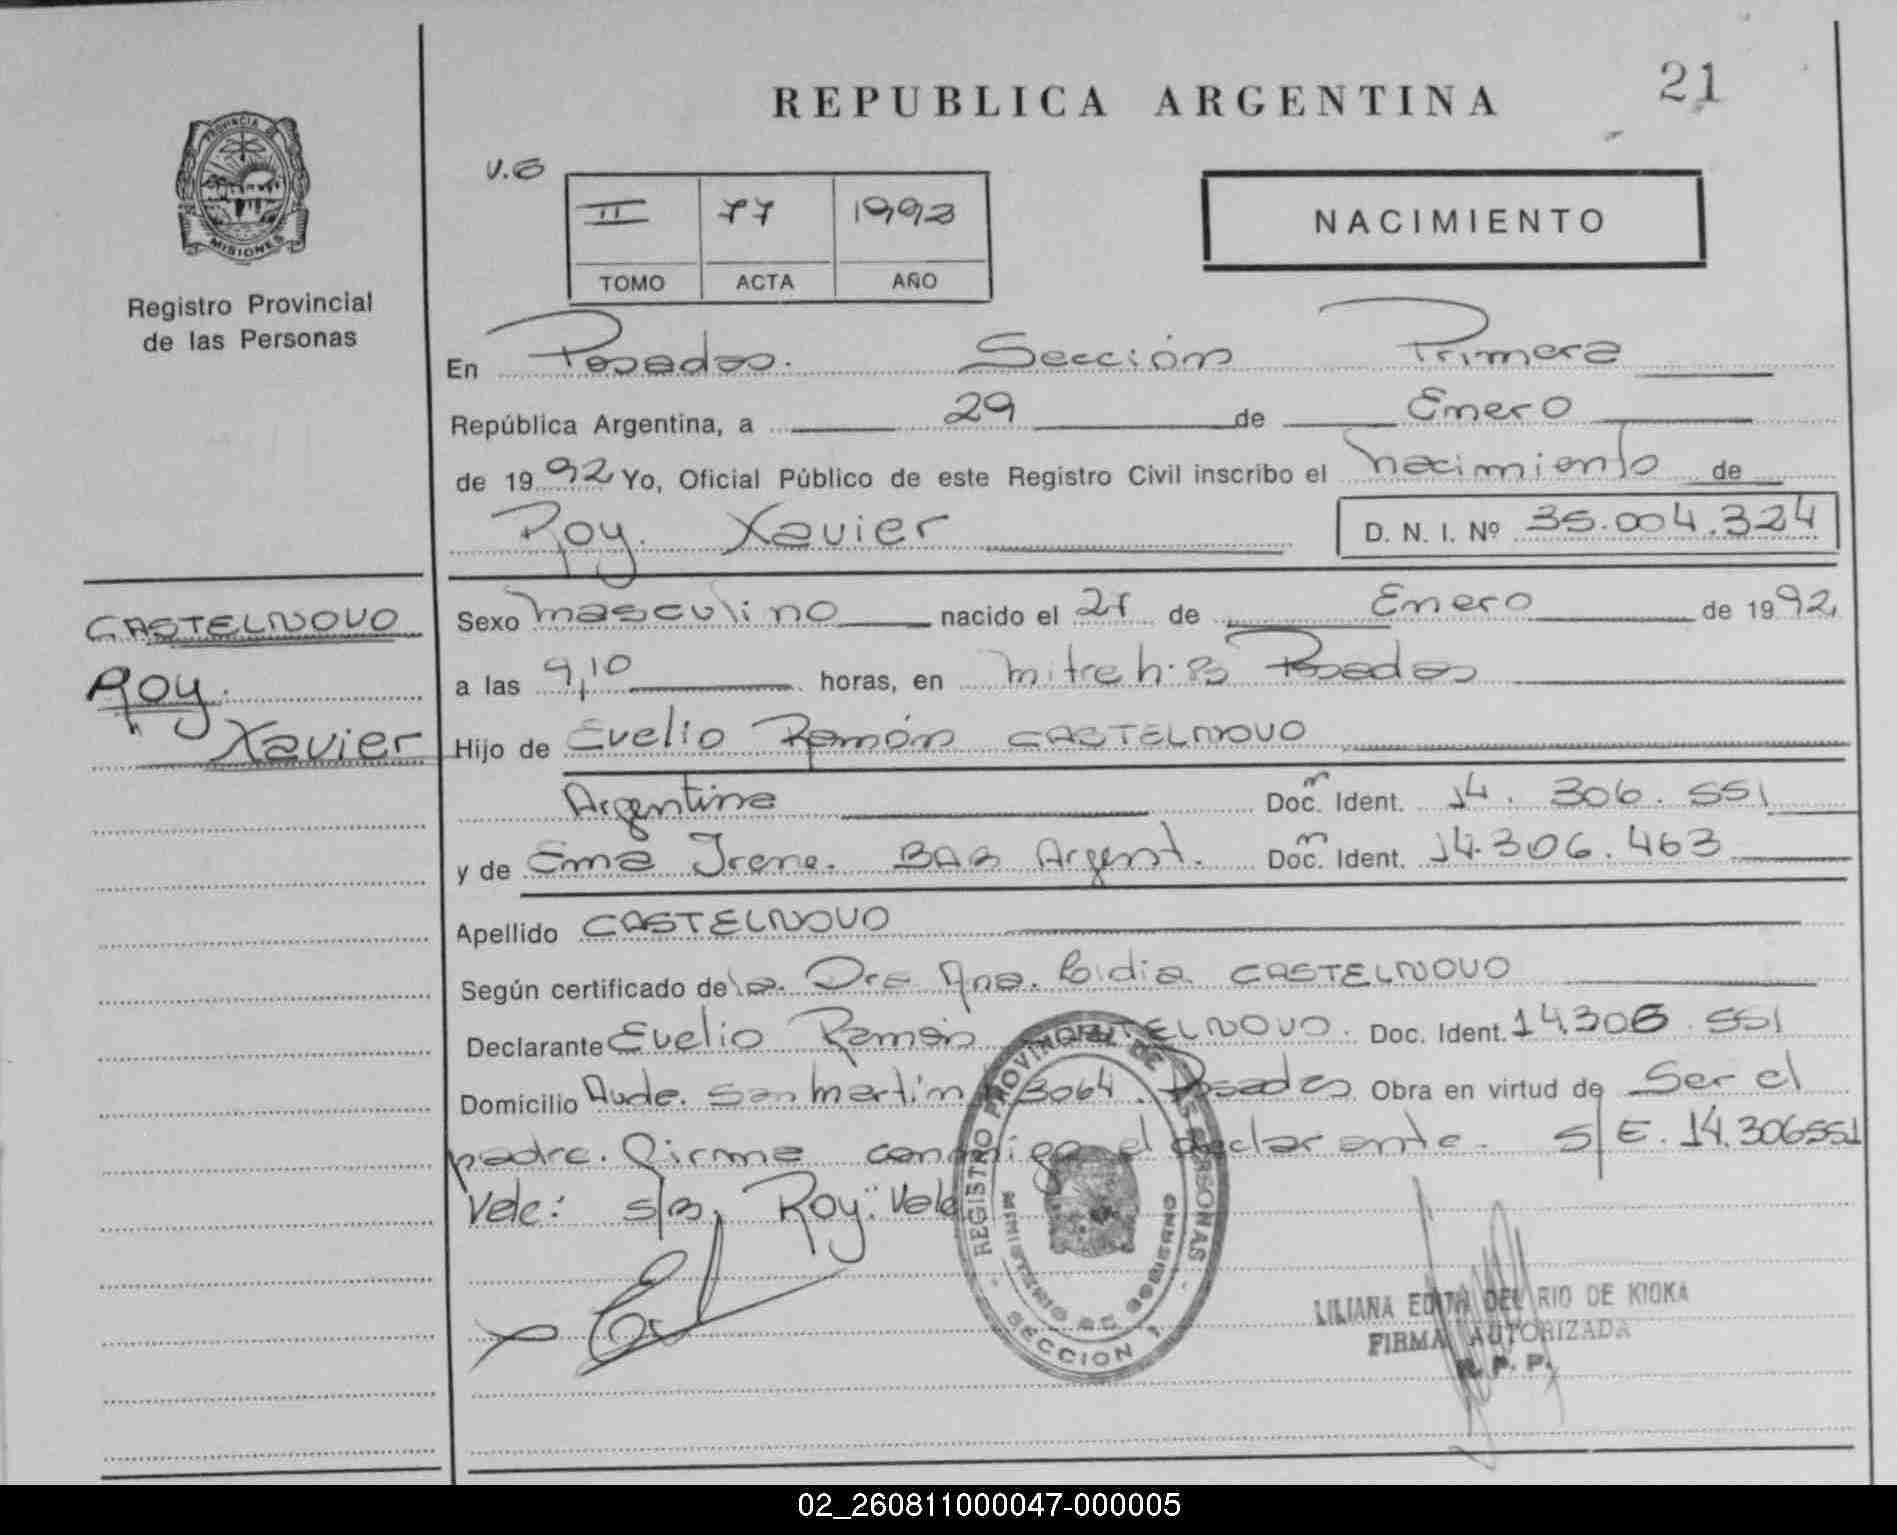 REPUBLICA ARGENTINA
21
PROVINCIA DE
MISIONES
Registro Provincial
de las Personas
V.E
II 77 1992
TOMO ACTA AÑO
NACIMIENTO
En Posadas. Sección Primera
República Argentina, a 29 de Enero
de 1992 Yo, Oficial Público de este Registro Civil inscribo el nacimiento de
Roy. Xavier D. N. I. Nº 35.004.324
CASTELNOVO
Roy.
Xavier
Sexo masculino nacido el 21 de Enero de 1992
a las 9,10 horas, en Mitre Posadas
Hijo de Evelio Ramón CASTELNOVO
Argentina Doc. Ident. 14.306.551
y de Ema Irene. Argent. Doc. Ident. 14.306.463
Apellido CASTELNOVO
Según certificado de la. Dra Ana. Lidia CASTELNOVO
Declarante Evelio Ramón CASTELNOVO. Doc. Ident. 14.306.551
Domicilio Avde. San Martín 3064. Posadas Obra en virtud de Ser el
padre. Firma conmigo el declarante. S/E. 14.306551
Vale: s/B. Roy: Vale
REGISTRO PROVINCIAL DE LAS PERSONAS
MINISTERIO DE GOBIERNO
SECCION 1
LILIANA EDITH DEL RIO DE KIOKA
FIRMA AUTORIZADA
R. P. P.
02_260811000047-000005